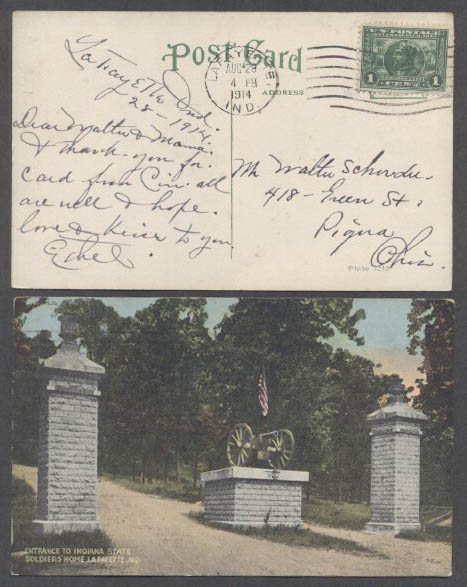 Post Card
ADDRESS
LAFAYETTE
AUG 29
4 PM
1914
IND.
U.S. POSTAGE
1 1
LaFayette Ind.
28-1914.
Dear Walter & Mama:
I thank you for
card from Cin. all
are well & hope.
love & kisses to you
Ethel.
Mr Walter
418- Green St:
Piqua
Ohio.
Plate
ENTRANCE TO INDIANA STATE
SOLDIERS HOME LAFAYETTE, IND.